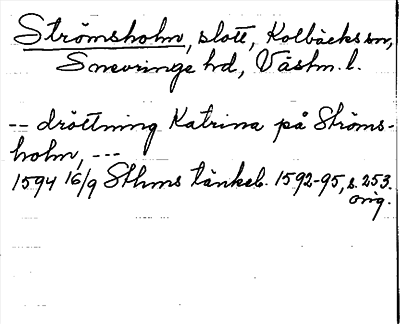 Strömsholm, slott, Kolbäcks sn,
Snevringe hd, Västm. l.
-- drottning Katrina på Ströms-
holm, ---
1594 16/9 Sthms tänkeb. 1592-95, s. 253.
orig.